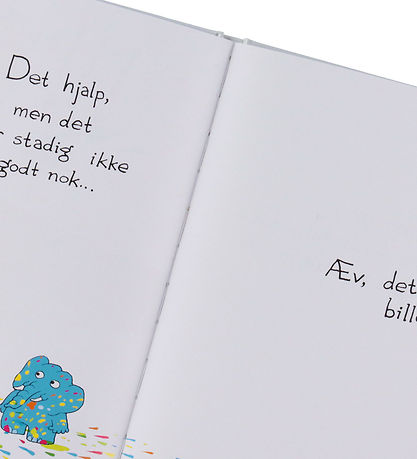 Det hjalp,
men det
stadig ikke
godt nok...
Æv, det